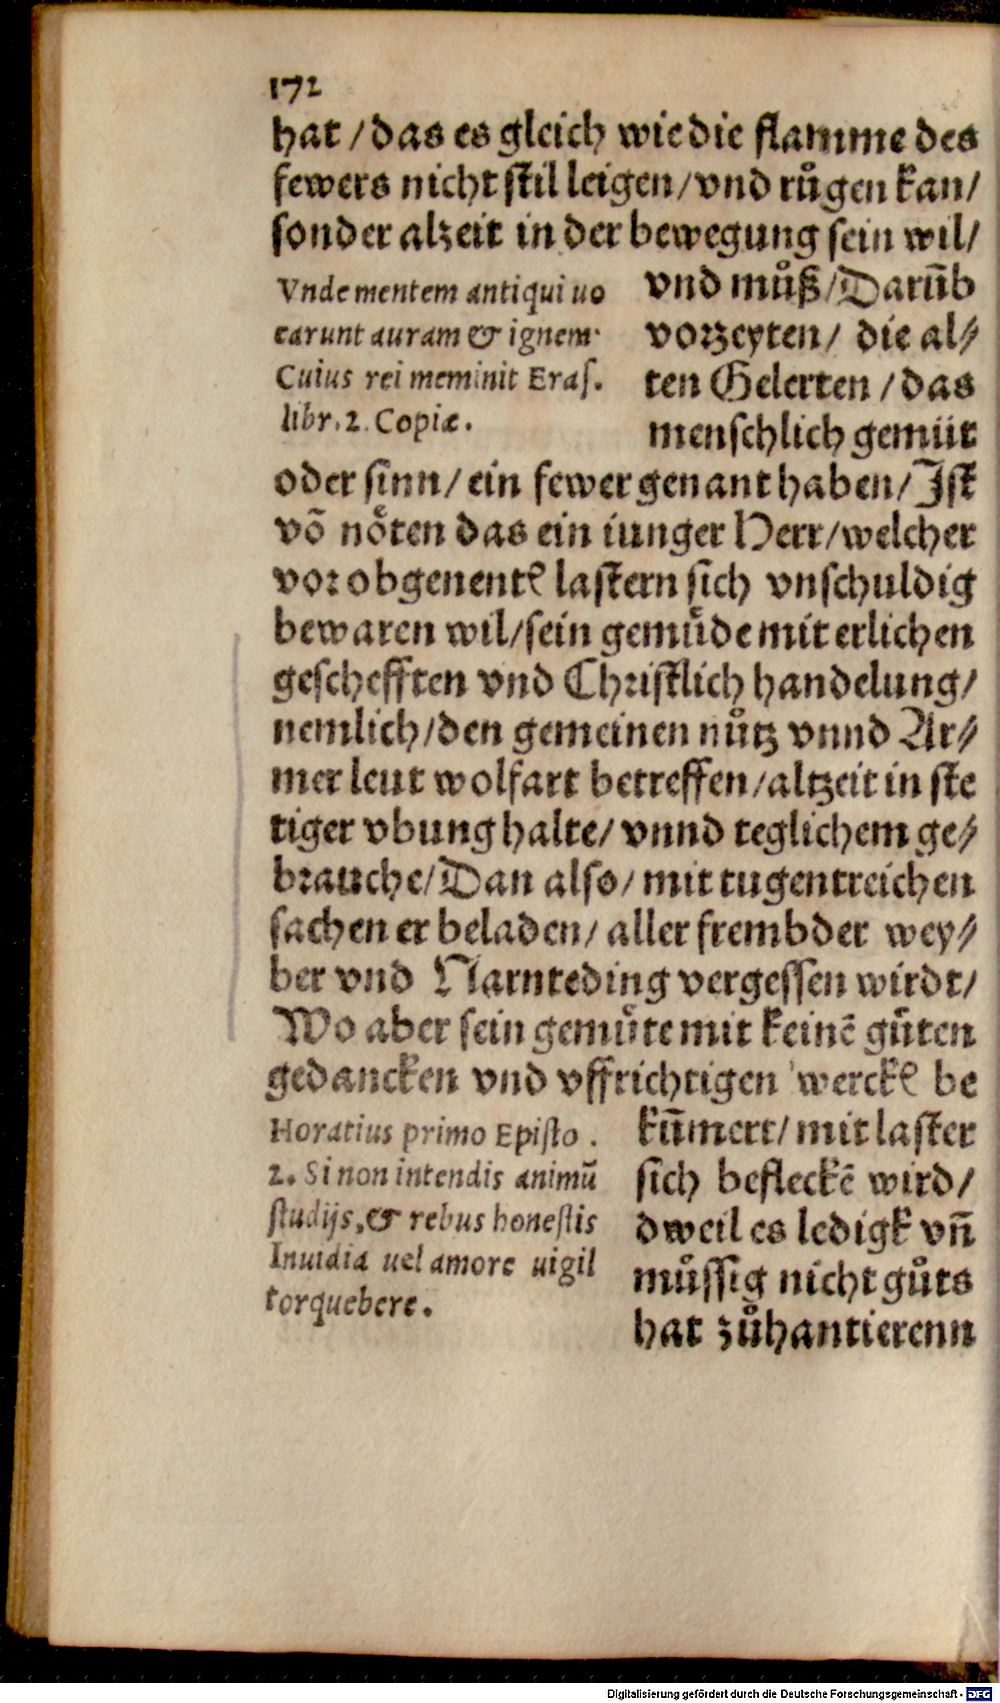 172
hat / das es gleich wie die flamme des
fewers nicht stil leigen / vnd růgen kan /
sonder alzeit in der bewegung sein wil /
Vnde mentem antiqui uo
carunt auram & ignem.
Cuius rei meminit Eras.
libr. 2. Copiæ.
vnd můß / Darũb
vorzeyten / die al⸗
ten Gelerten / das
menschlich gemüt
oder sinn / ein fewer genant haben / Ist
võ nöten das ein iunger Herr / welcher
vor obgenentꝭ lastern sich vnschuldig
bewaren wil / sein gemůde mit erlichen
geschefften vnd Christlich handelung /
nemlich / den gemeinen nůtz vnnd Ar⸗
mer leut wolfart betreffen / altzeit in ste
tiger vbung halte / vnnd teglichem ge⸗
brauche / Dan also / mit tugentreichen
sachen er beladen / aller frembder wey⸗
ber vnd Narnteding vergessen wirdt /
Wo aber sein gemůte mit keinẽ gůten
gedancken vnd vffrichtigen werckꝭ be
Horatius primo Episto .
2. Si non intendis animũ
studijs, & rebus honestis
Inuidia uel amore uigil
torquebere.
kũmert / mit laster
sich befleckẽ wird /
dweil es ledigk vñ
můssig nicht gůts
hat zůhantierenn
Digitalisierung gefördert durch die Deutsche Forschungsgemeinschaft - DFG